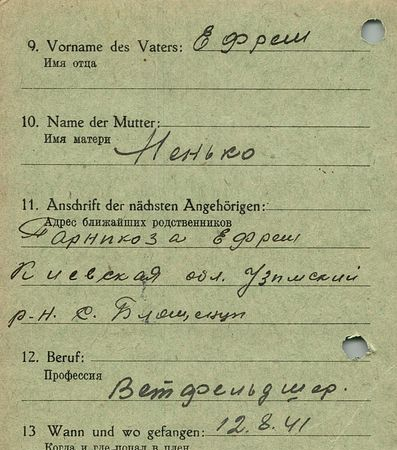 9. Vorname des Vaters: Ефрем
Имя отца
10. Name der Mutter:
Имя матери Менько
11. Anschrift der nächsten Angehörigen:
Адрес ближайших родственников
Парникоза Ефрем
Киевская обл. Узинский
р-н. с. Блощенцы
12. Beruf:
Профессия
Ветфельдшер.
13 Wann und wo gefangen: 12.8.41
Когда и где попал в плен